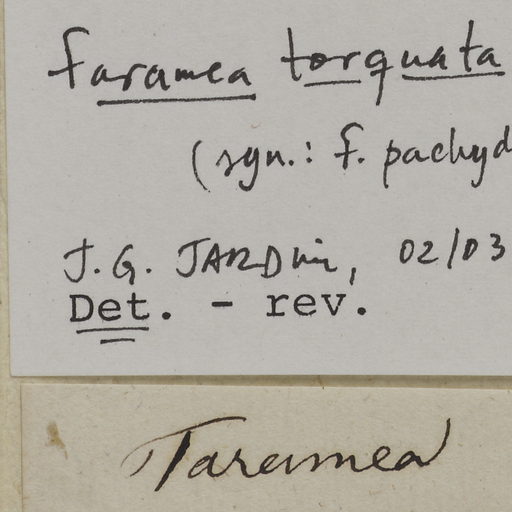 Faramea torquata
(syn.: F. pachyd
J.G. JARDim, 02/03
Det. - rev.
Faramea